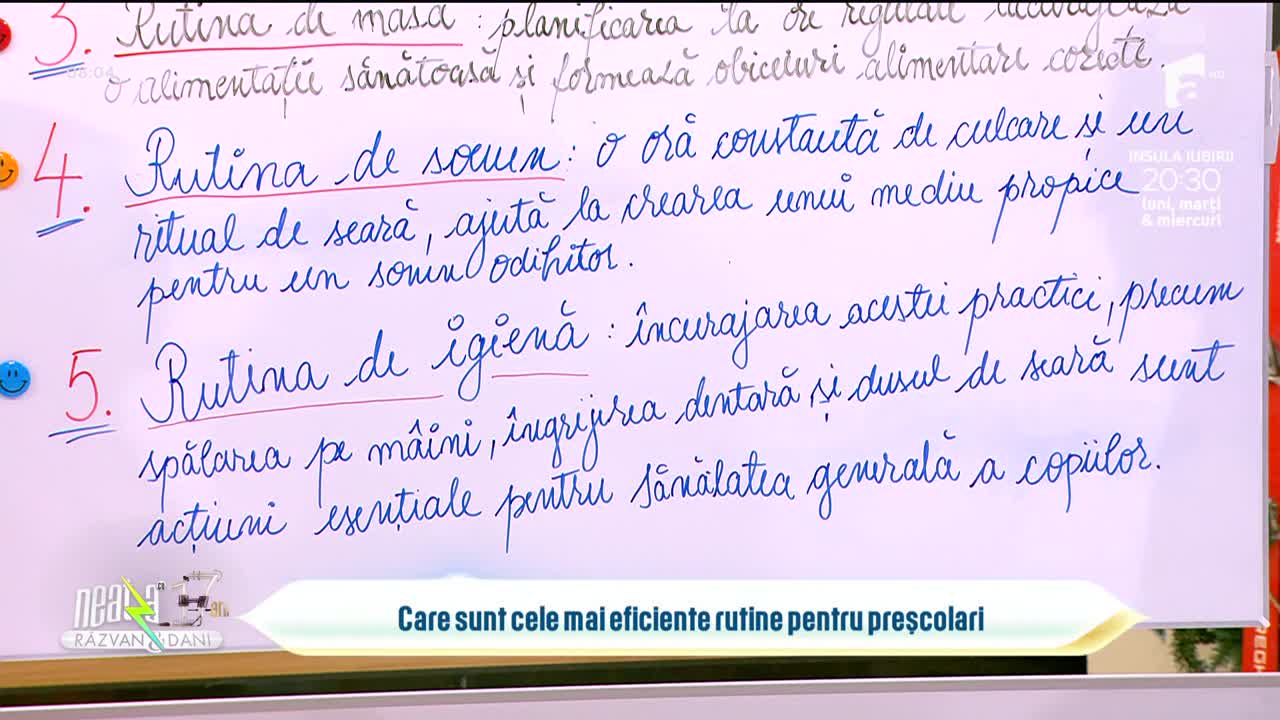 3. Rutina de masă : planificarea la ore regulate încurajează
o alimentație sănătoasă și formează obiceiuri alimentare corecte.
08:04
4. Rutina de somn : o oră constantă de culcare și un
ritual de seară, ajută la crearea unui mediu propice
pentru un somn odihitor.
5. Rutina de igienă : încurajarea acestei practici, precum
spălarea pe mâini, îngrijirea dentară și dusul de seară sunt
acțiuni esențiale pentru sănălatea generală a copiilor.
INSULA IUBIRII
20:30
luni, marți
& miercuri
neatza
17 ani
RĂZVAN & DANI
Care sunt cele mai eficiente rutine pentru preșcolari